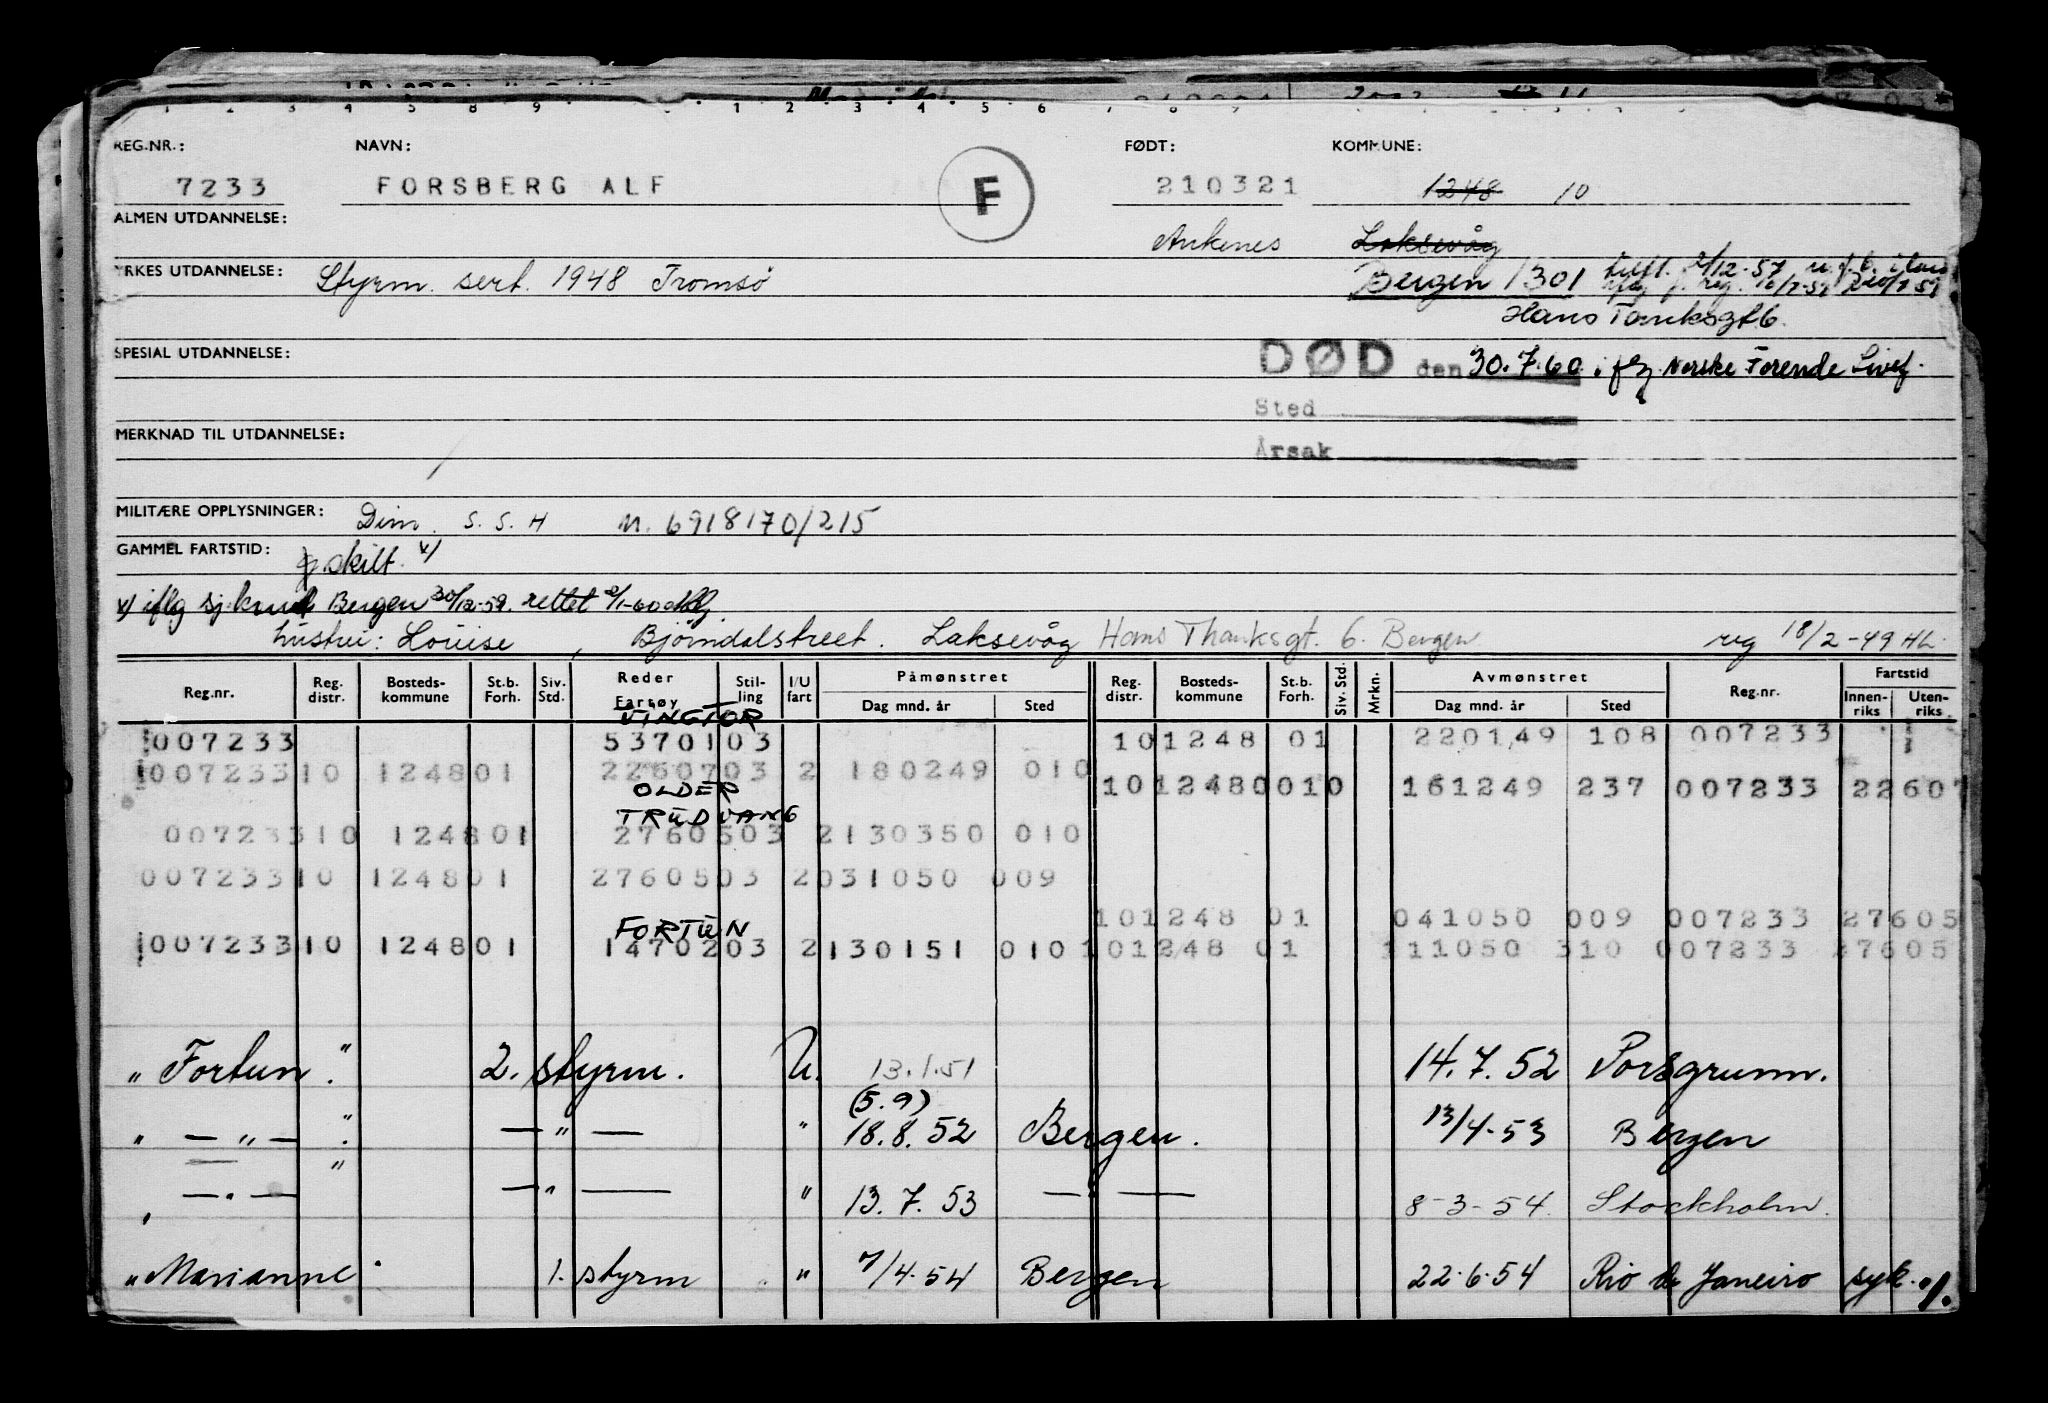 REG.NR.: NAVN: FØDT: KOMMUNE:
7233 FORSBERG ALF F 210321 1248 10
ALMEN UTDANNELSE: Ankenes Laksevåg
YRKES UTDANNELSE: Styrm. sert. 1948 Tromsø Bergen 1301
Hans Tanksgt 6.
SPESIAL UTDANNELSE: DØD den 30.7.60. iflg. Norske Forende Livsf.
Sted
MERKNAD TIL UTDANNELSE:
Årsak
MILITÆRE OPPLYSNINGER: Dim. S. S. H M. 6918170/215
GAMMEL FARTSTID: skilt. x/
x/ iflg sj. Bergen 30/12-59. rettet 2/1-60
hustru: Louise, Bjørndalstreet. Laksevåg Hans Thanksgt. 6. Bergen reg 18/2-49 HL.
Reg.nr. Reg. distr. Bosteds-kommune St.b. Forh. Siv. Std. Reder Fartøy Stil-ling I/U fart Påmønstret Dag mnd. år Sted Reg. distr. Bosteds-kommune St.b. Forh. Siv. Std. Mrkn. Avmønstret Dag mnd. år Sted Reg.nr. Fartstid Innen-riks Uten-riks
VINGTOR
007233 5370103 101248 01 220149 108 007233
00723310 124801 2260703 2 180249 010
OLDER 1012480010 161249 237 007233 22607
TRUDVANG
00723310 124801 2760503 2130350 010
00723310 124801 2760503 2031050 009
101248 01 041050 009 007233 27605
FORTUN
00723310 124801 1470203 2130151 010 101248 01 111050 310 007233 27605
" Fortun " . 2. styrm. U. 13.1.51 14.7.52 Porsgrunn.
(5.9)
" — " — " . — " — " 18.8.52 Bergen. 13/4-53 Bergen
— "
" — " — — " — " 13.7.53 — " — 8-3-54. Stockholm.
" Marianne " 1. styrm " 7/4.54 Bergen 22.6.54 Rio de Janeiro syk. ./.